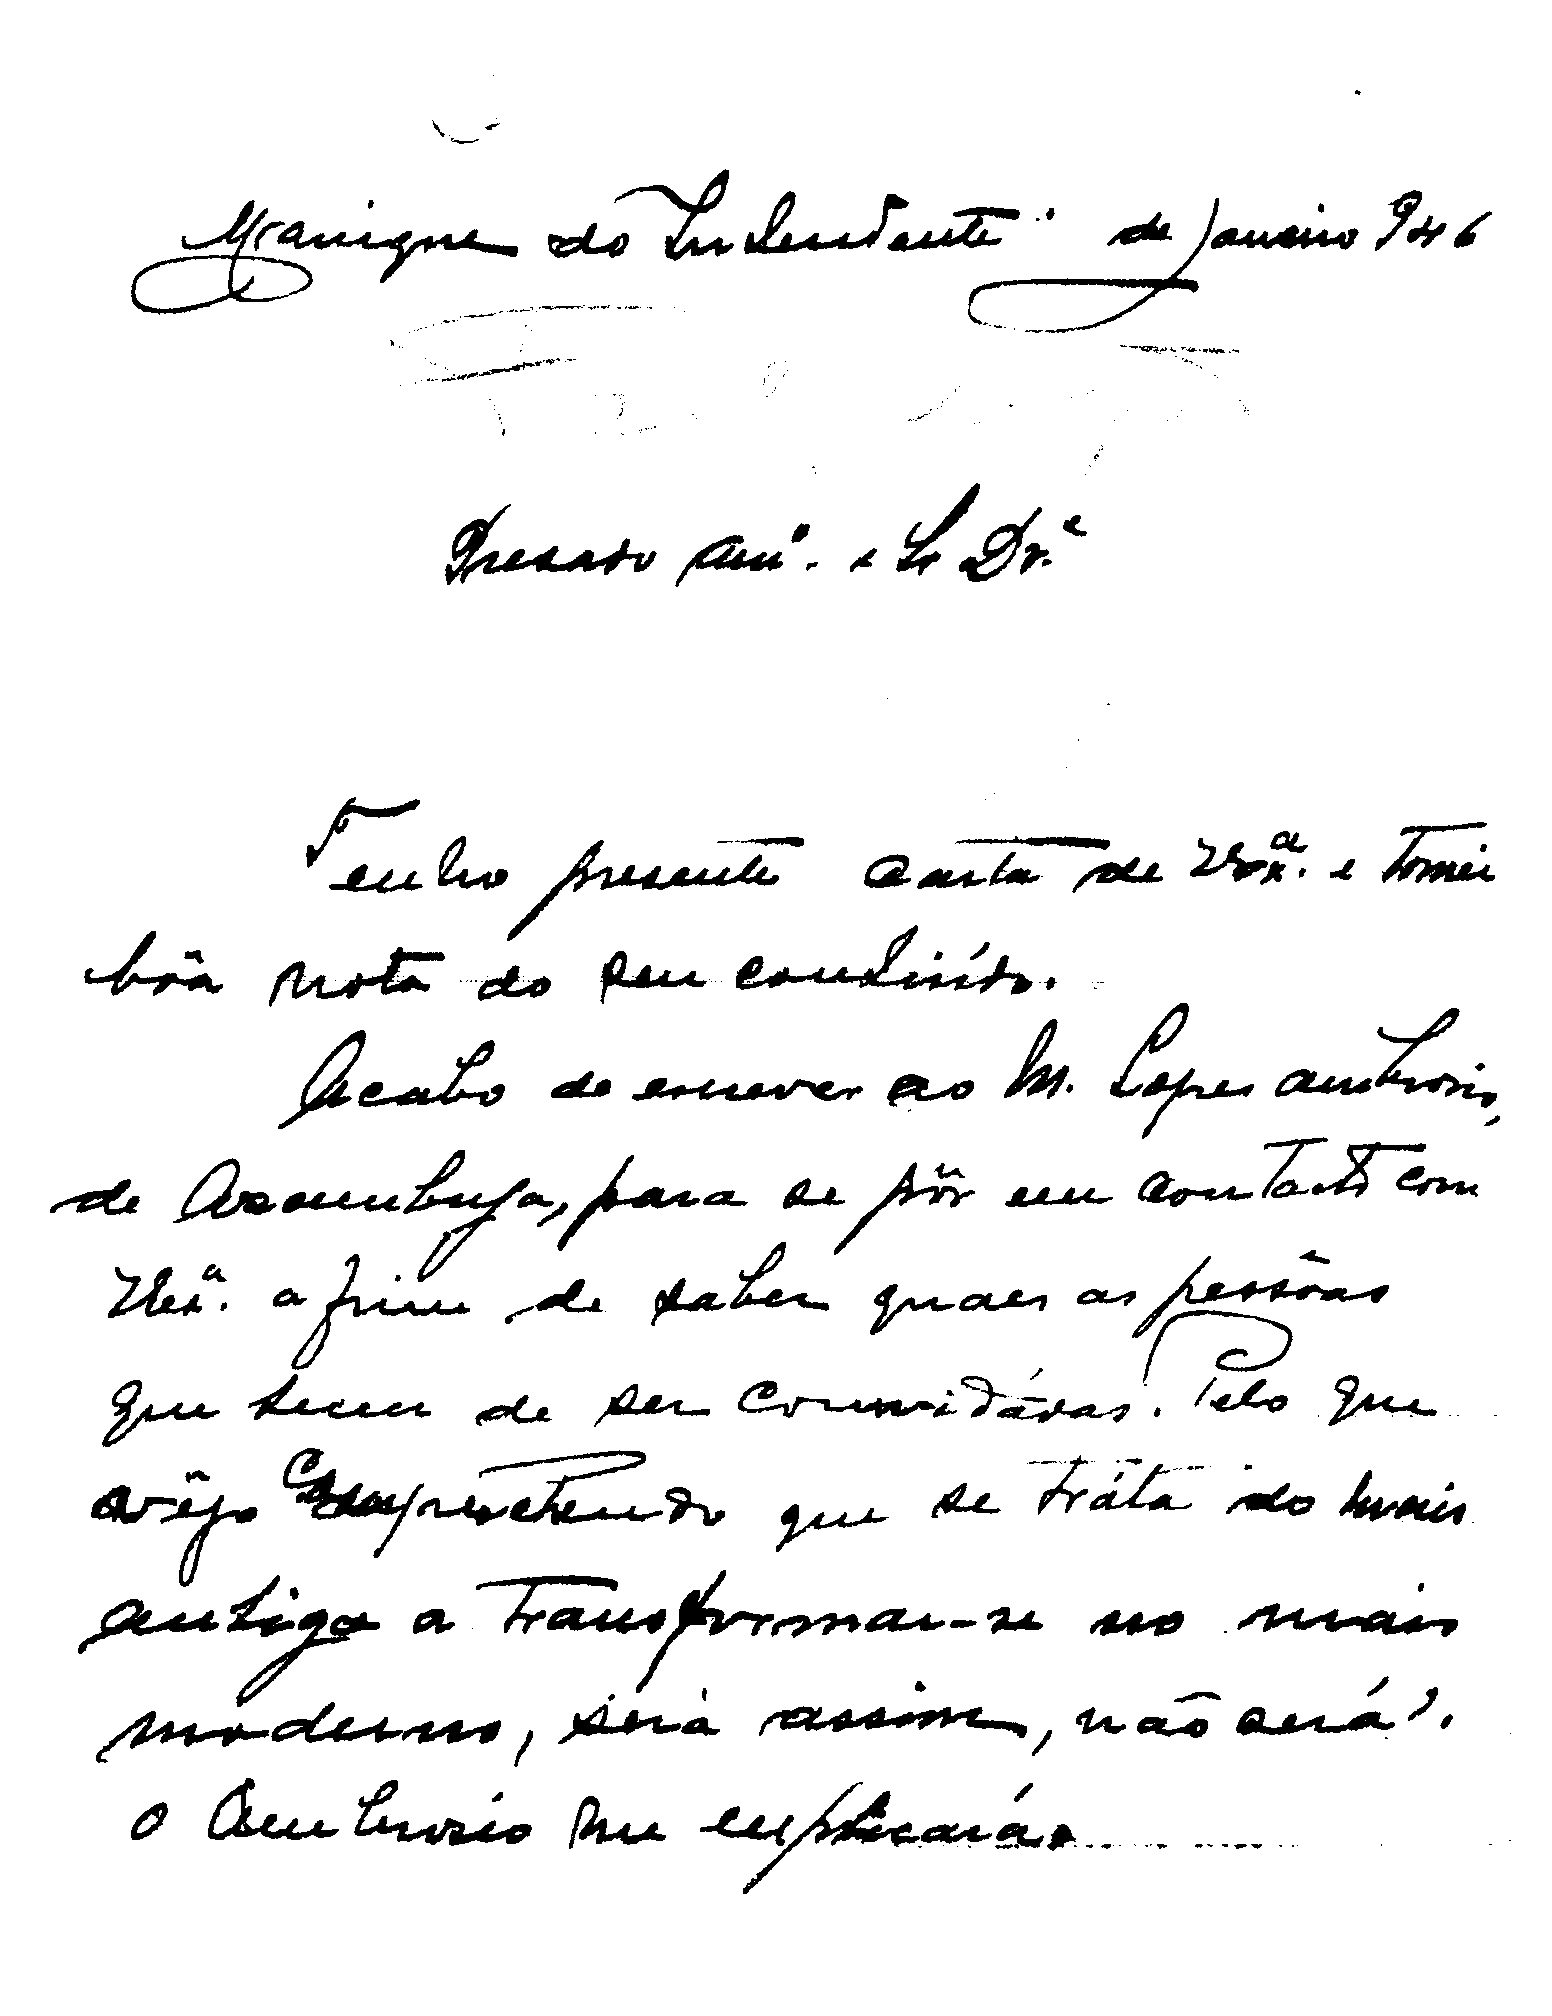 Manique do Intendente de Janeiro 946
Presado Amº. e Sr Dr.
Tenho presente carta de VExª. e tomei
bôa nota do seu contiúdo.
Acabo de escrever ao M. Lopes Ambrosio,
de Azambuja, para se pôr em contacto com
VExª. a fim de saber quaes as pessôas
que teem de ser convidádas. Pelo que
vêjo Comprehendo que se tráta do mais
antigo a transformar-se no mais
moderno, será assim, não será?.
O Ambrosio me explicará.